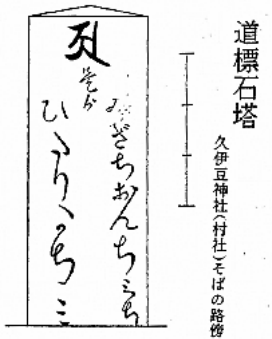 道標石塔
久伊豆神社(村社)そばの路傍
みぎちおんちミち
是より
ひたり